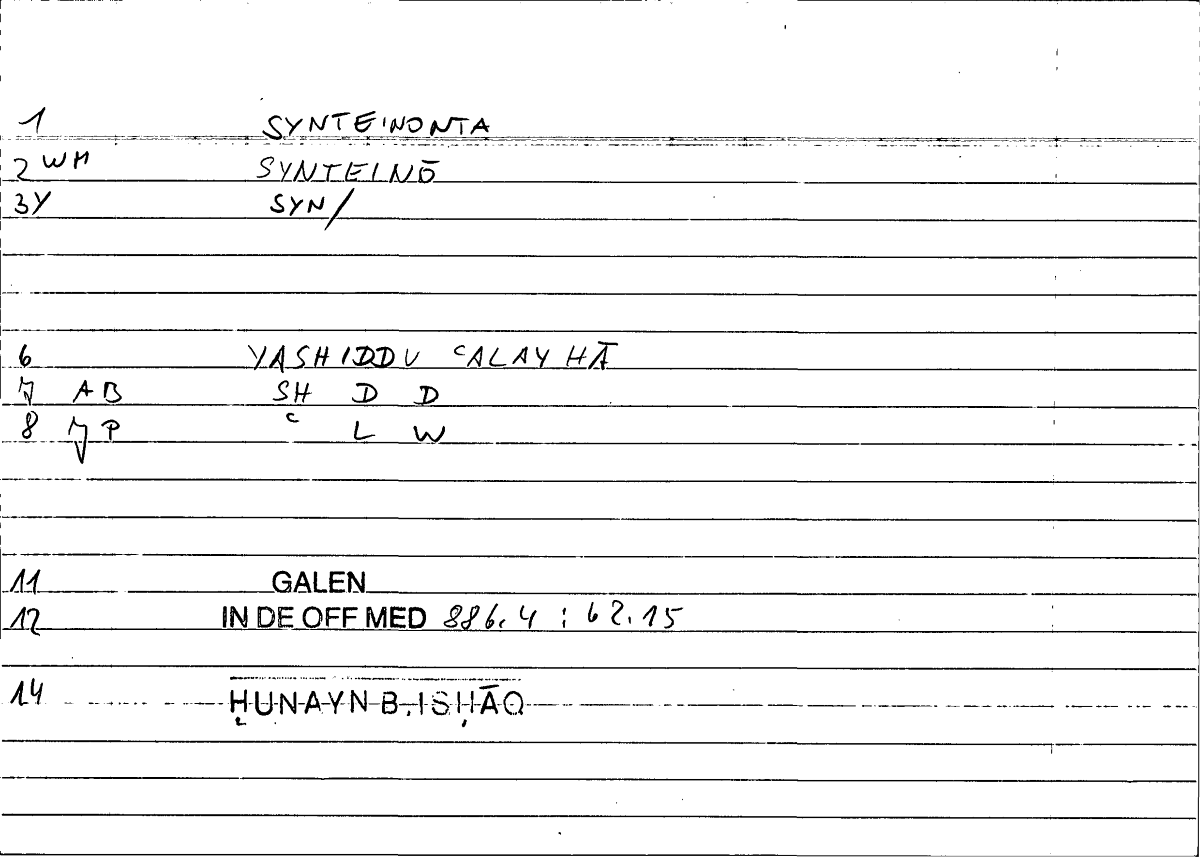 1 SYNTEINONTA
2 WH SYNTEINŌ
3Y SYN/
6 YASHIDDU ʿALAYHĀ
7 AB SH D D
8 P ʿ L W
11 GALEN
12 IN DE OFF MED 886.4 : 62.15
14 ḤUNAYN B. ISḤĀQ